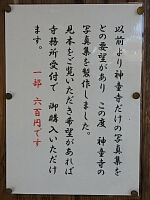 以前より神童寺だけの写真集を
との要望があり この度 神童寺の
写真集を製作しました。
見本をご覧いただき希望があれば
寺務所受付で 御購入いただけ
ます。
一部 六百円です